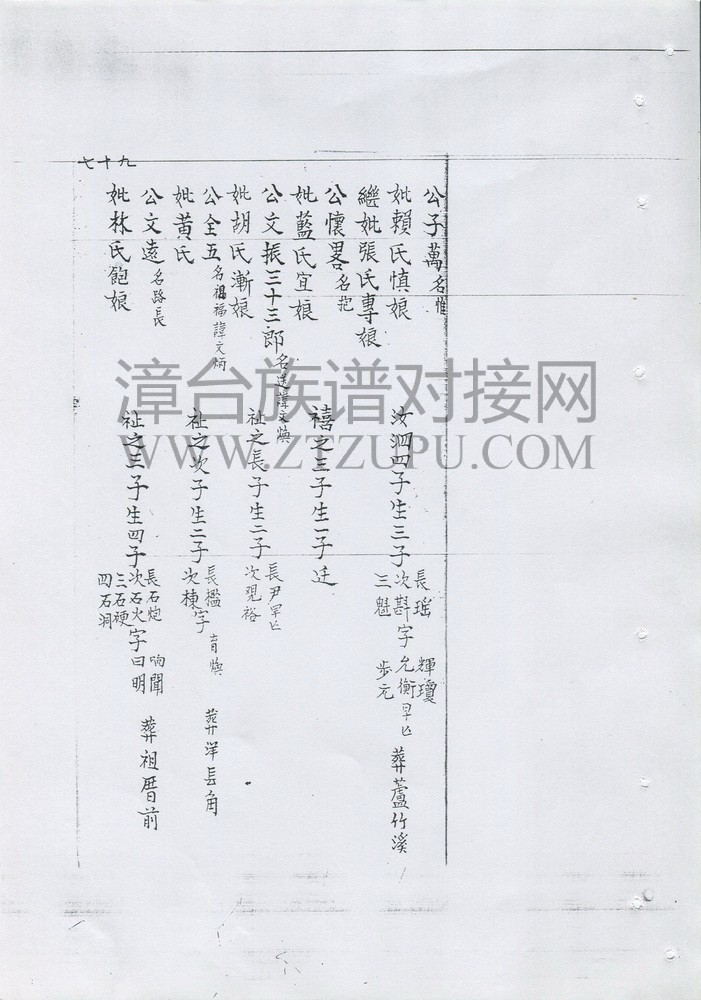 七十九
公子萬名惟
妣賴氏慎娘
汝泗四子生三子
長瑶
次斟
三魁
字
輝瓊
允衡早亡
步元
葬蘆竹溪
繼妣張氏專娘
公懷畧名抱
妣藍氏宜娘
禧之三子生一子廷
公文振三十三郎名送諱文煥
妣胡氏漸娘
祉之長子生二子
長尹早亡
次覌裕
公全五名禓福諱文炳
妣黄氏
祉之次子生二子
長檻
次棟
字
育煥
葬洋長角
公文遠名路長
妣林氏飽娘
祉之三子生四子
長石炮
次石火
三石硬
四石洞
字
响聞
曰明
葬祖厝前
漳台族谱对接网
WWW.ZTZUPU.COM